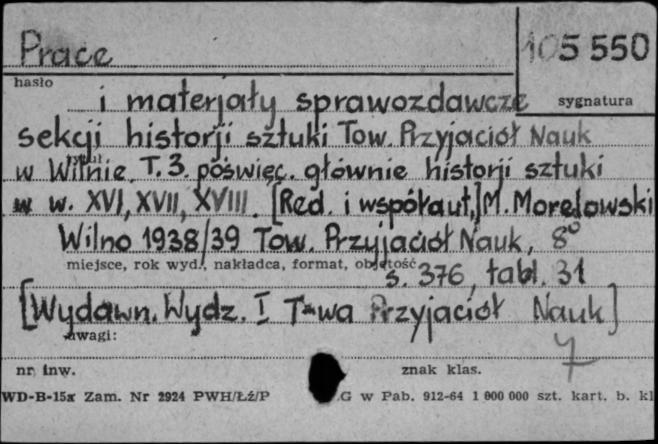 Prace
105 550
hasło
sygnatura
i materjały sprawozdawcze
sekcji historji sztuki Tow. Przyjaciół Nauk
w Wilnie. T. 3. poświęc. głównie historji sztuki
w w. XVI, XVII, XVIII. [Red. i współaut.] M. Morelowski
Wilno 1938/39 Tow. Przyjaciół Nauk, 8°
miejsce, rok wyd., nakładca, format, objętość
s. 376, tabl. 31
[Wydawn. Wydz. I T-wa Przyjaciół Nauk]
uwagi:
7
nr. inw.
znak klas.
WD-B-15x Zam. Nr 2924 PWH/Łź/P G w Pab. 912-64 1 000 000 szt. kart. b. kl